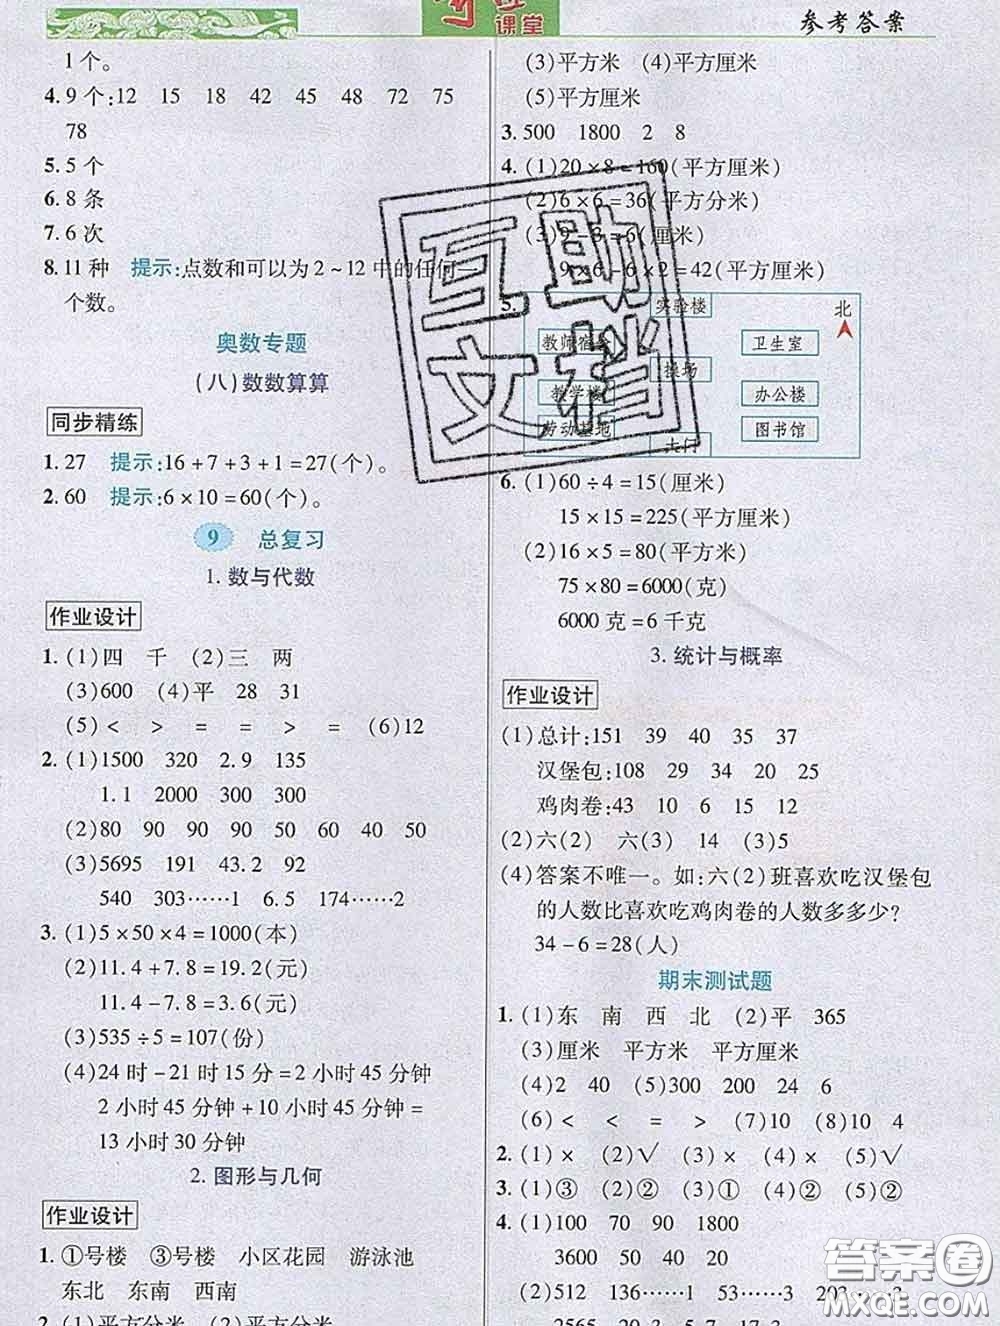 课堂
参考答案
1个。
4. 9个:12 15 18 42 45 48 72 75
78
5. 5个
6. 8条
7. 6次
8. 11种 提示:点数和可以为2~12中的任何一
个数。
奥数专题
(八)数数算算
同步精练
1. 27 提示:16+7+3+1=27(个)。
2. 60 提示:6×10=60(个)。
9 总复习
1. 数与代数
作业设计
1. (1)四 千 (2)三 两
(3)600 (4)平 28 31
(5)< > = = > = (6)12
2. (1)1500 320 2.9 135
1.1 2000 300 300
(2)80 90 90 90 50 60 50
(3)5695 191 43.2 92
540 303……1 6.5 174……2
3. (1)5×50×4=1000(本)
(2)11.4+7.8=19.2(元)
11.4-7.8=3.6(元)
(3)535÷5=107(份)
(4)24时-21时15分=2小时45分钟
2小时45分钟+10小时45分钟=
13小时30分钟
2. 图形与几何
作业设计
1. ①号楼 ③号楼 小区花园 游泳池
东北 东南 西南
2. (1)平方分米 (2)平方厘米
(3)平方米 (4)平方厘米
(5)平方厘米
3. 500 1800 2 8
4. (1)20×8=160(平方厘米)
(2)6×6=36(平方分米)
(3)9-3=6(厘米)
9×6-6×2=42(平方厘米)
5.
实验楼
北
教师宿舍
卫生室
操场
教学楼
办公楼
劳动基地
图书馆
大门
6. (1)60÷4=15(厘米)
15×15=225(平方厘米)
(2)16×5=80(平方米)
75×80=6000(克)
6000克=6千克
3. 统计与概率
作业设计
(1)总计:151 39 40 35 37
汉堡包:108 29 34 20 25
鸡肉卷:43 10 6 15 12
(2)六(2) 六(3) 14 (3)5
(4)答案不唯一。如:六(2)班喜欢吃汉堡包
的人数比喜欢吃鸡肉卷的人数多多少?
34-6=28(人)
期末测试题
1. (1)东 南 西 北 (2)平 365
(3)厘米 平方米 平方厘米
(4)2 40 (5)300 200 24 6
(6)< < = > (7)10 (8)10 4
2. (1)× (2)√ (3)× (4)× (5)√
3. (1)③ (2)② (3)① (4)② (5)②
4. (1)100 70 90 1800
3600 50 40 20
(2)512 136……1 53……3
2565 20.3 5.7 17.3
互助
文档
答案圈
MXQE.COM